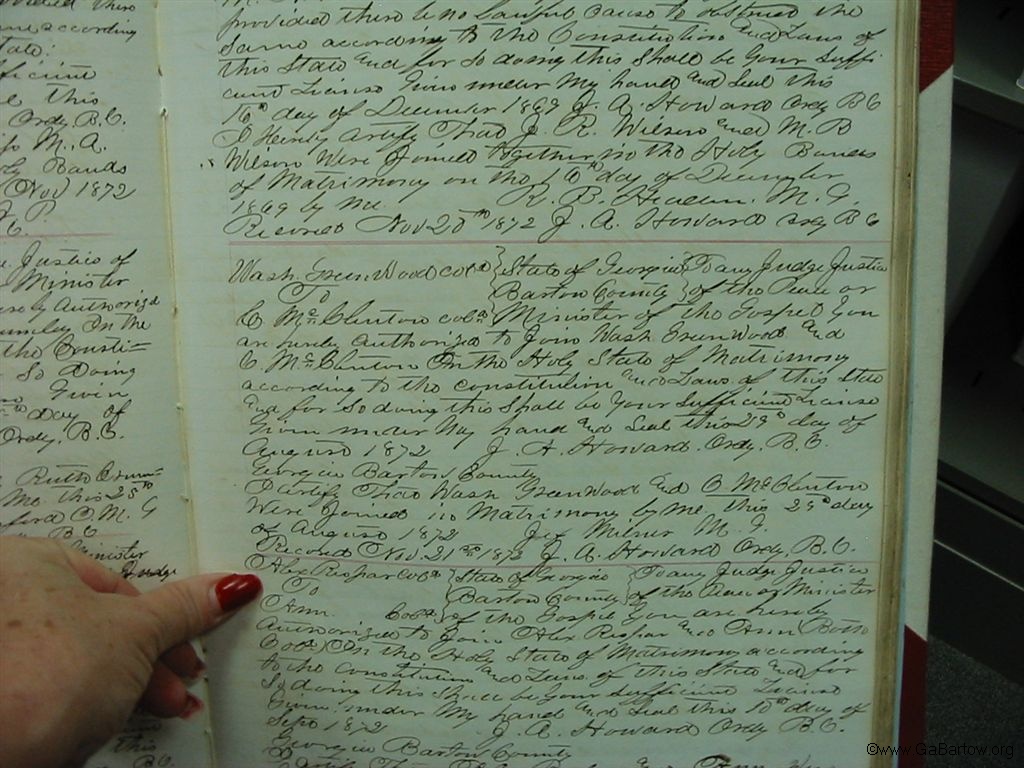 ovided there
me according
tate:
fficient
e this
Ordy. B.C.
M. A.
Holy Bands
Nov 1872
J. P.
C.
Justice of
Minister
hereby Authorized
in the
the Consti-
So Doing
Given
day of
Ordy. B.C.
Ruth
Mo this 25th
ford O. M. G
B C
Minister
Judge
this
B.C.
provided there be no lawful cause to obstruct the
Same according to the Constitution and Laws of
this State and for So doing this Shall be Your Suffi
cient License Given under My hand and Seal this
16th day of December 1869 J. A. Howard Ordy B C
I Hereby Certify That J. R. Wilson and M. B
Wilson Were Joined together in the Holy Bands
of Matrimony on the 16th day of December
1869 by Me. R. B. Headen. M. G.
Recorded Nov 20th 1872 J. A. Howard Ordy B C
Wash. GreenWood cold } State of Georgia } To any Judge Justice
To } Bartow County } of the Peace or
C McClinton cold Minister of the Gospel You
are hereby authorized to Join Wash GreenWood and
C. McClinton In the Holy State of Matrimony
according to the constitution and Laws of this State
and for So doing this Shall be Your Sufficient License
Given under My hand and Seal this 29th day of
August 1872 J. A. Howard. Ordy. B.C.
Georgia Bartow County
I Certify That Wash GreenWood and C McClinton
Were Joined in Matrimony by me this 29th day
of August 1872 Milner M. G.
Recorded Nov. 21st 1872 J. A. Howard Ordy. B.C.
Alex Raspar Cold } State of Georgia } To any Judge Justice
To } Bartow County } of the Peace or Minister
Ann Cold } of the Gospel You are hereby
Authorized to Join Alex Raspar and Ann (Both
Cold) In the Holy State of Matrimony according
to the Constitution and Laws of this State and for
So doing this Shall be Your Sufficient License
Given under My hand and Seal this 10th day of
Sept 1872 J. A. Howard Ordy B.C.
Georgia Bartow County
©www.GaBartow.org